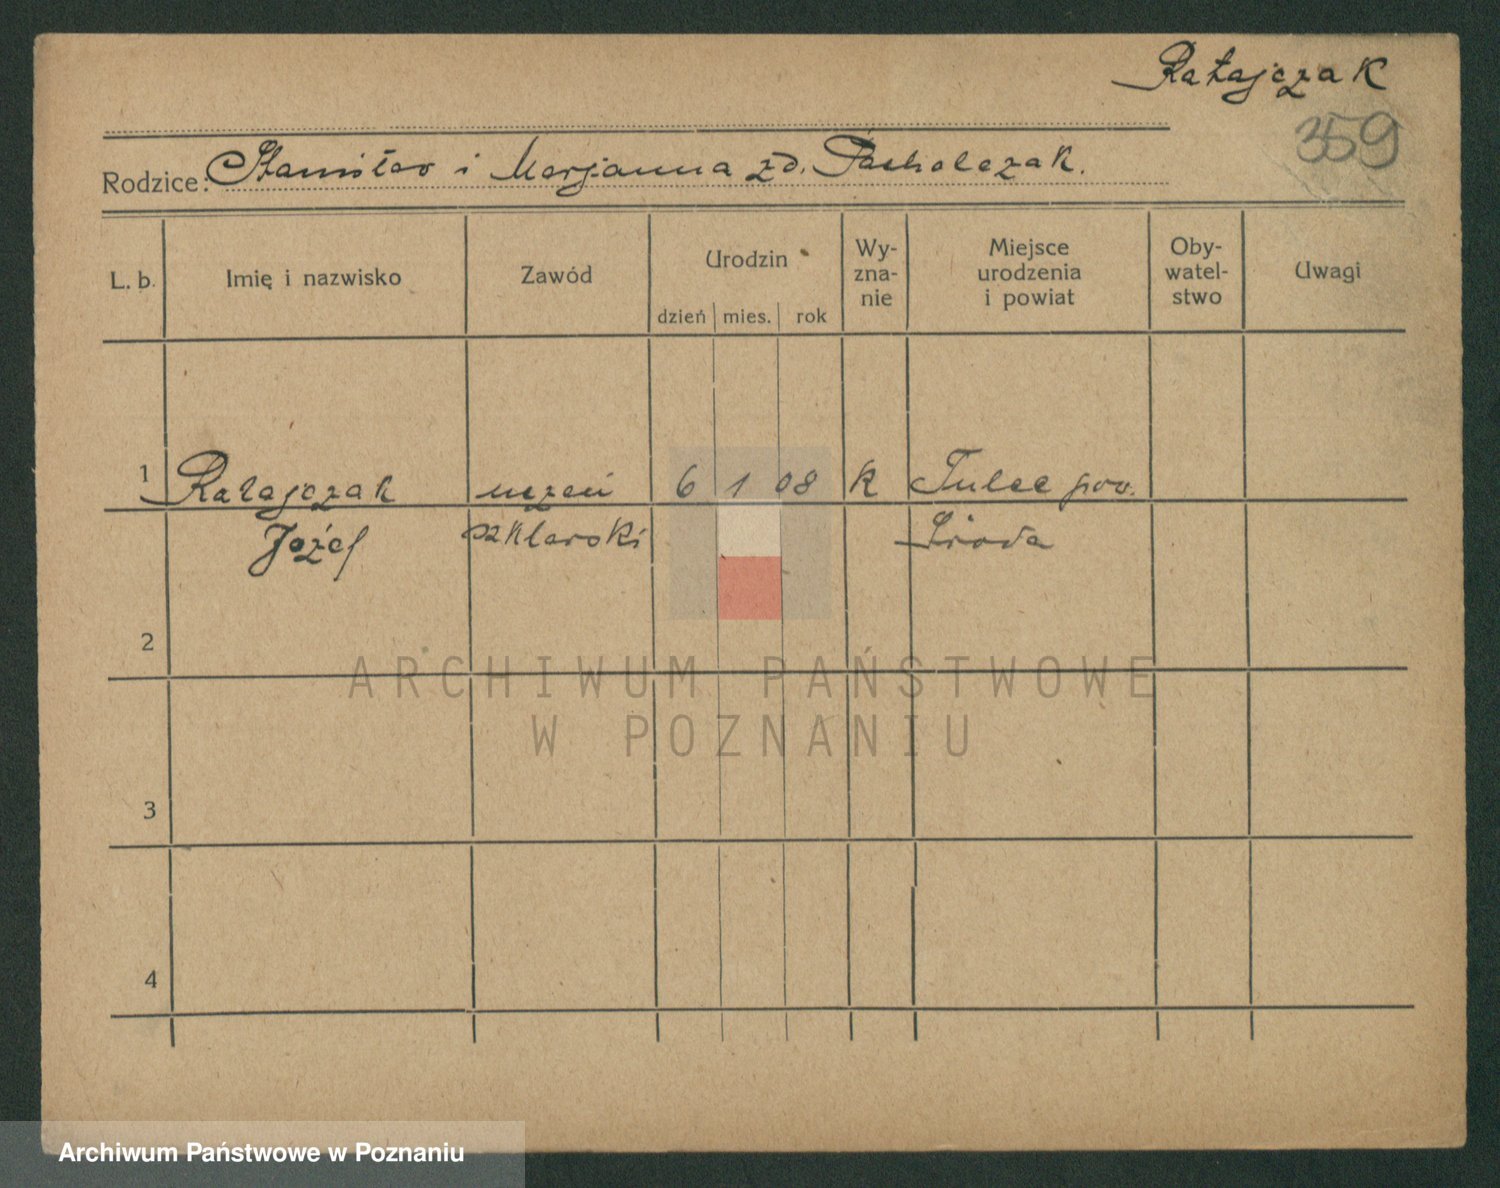 Ratajczak
359
Rodzice: Stanisław i Marjanna zd. Pacholczak.
L. b. Imię i nazwisko Zawód Urodzin dzień mies. rok Wy-zna-nie Miejsce urodzenia i powiat Oby-watel-stwo Uwagi
1 Ratajczak uczeń 6 1 08 K Tulce pow.
Józef szklarski Środa
2
ARCHIWUM PAŃSTWOWE
W POZNANIU
3
4
Archiwum Państwowe w Poznaniu